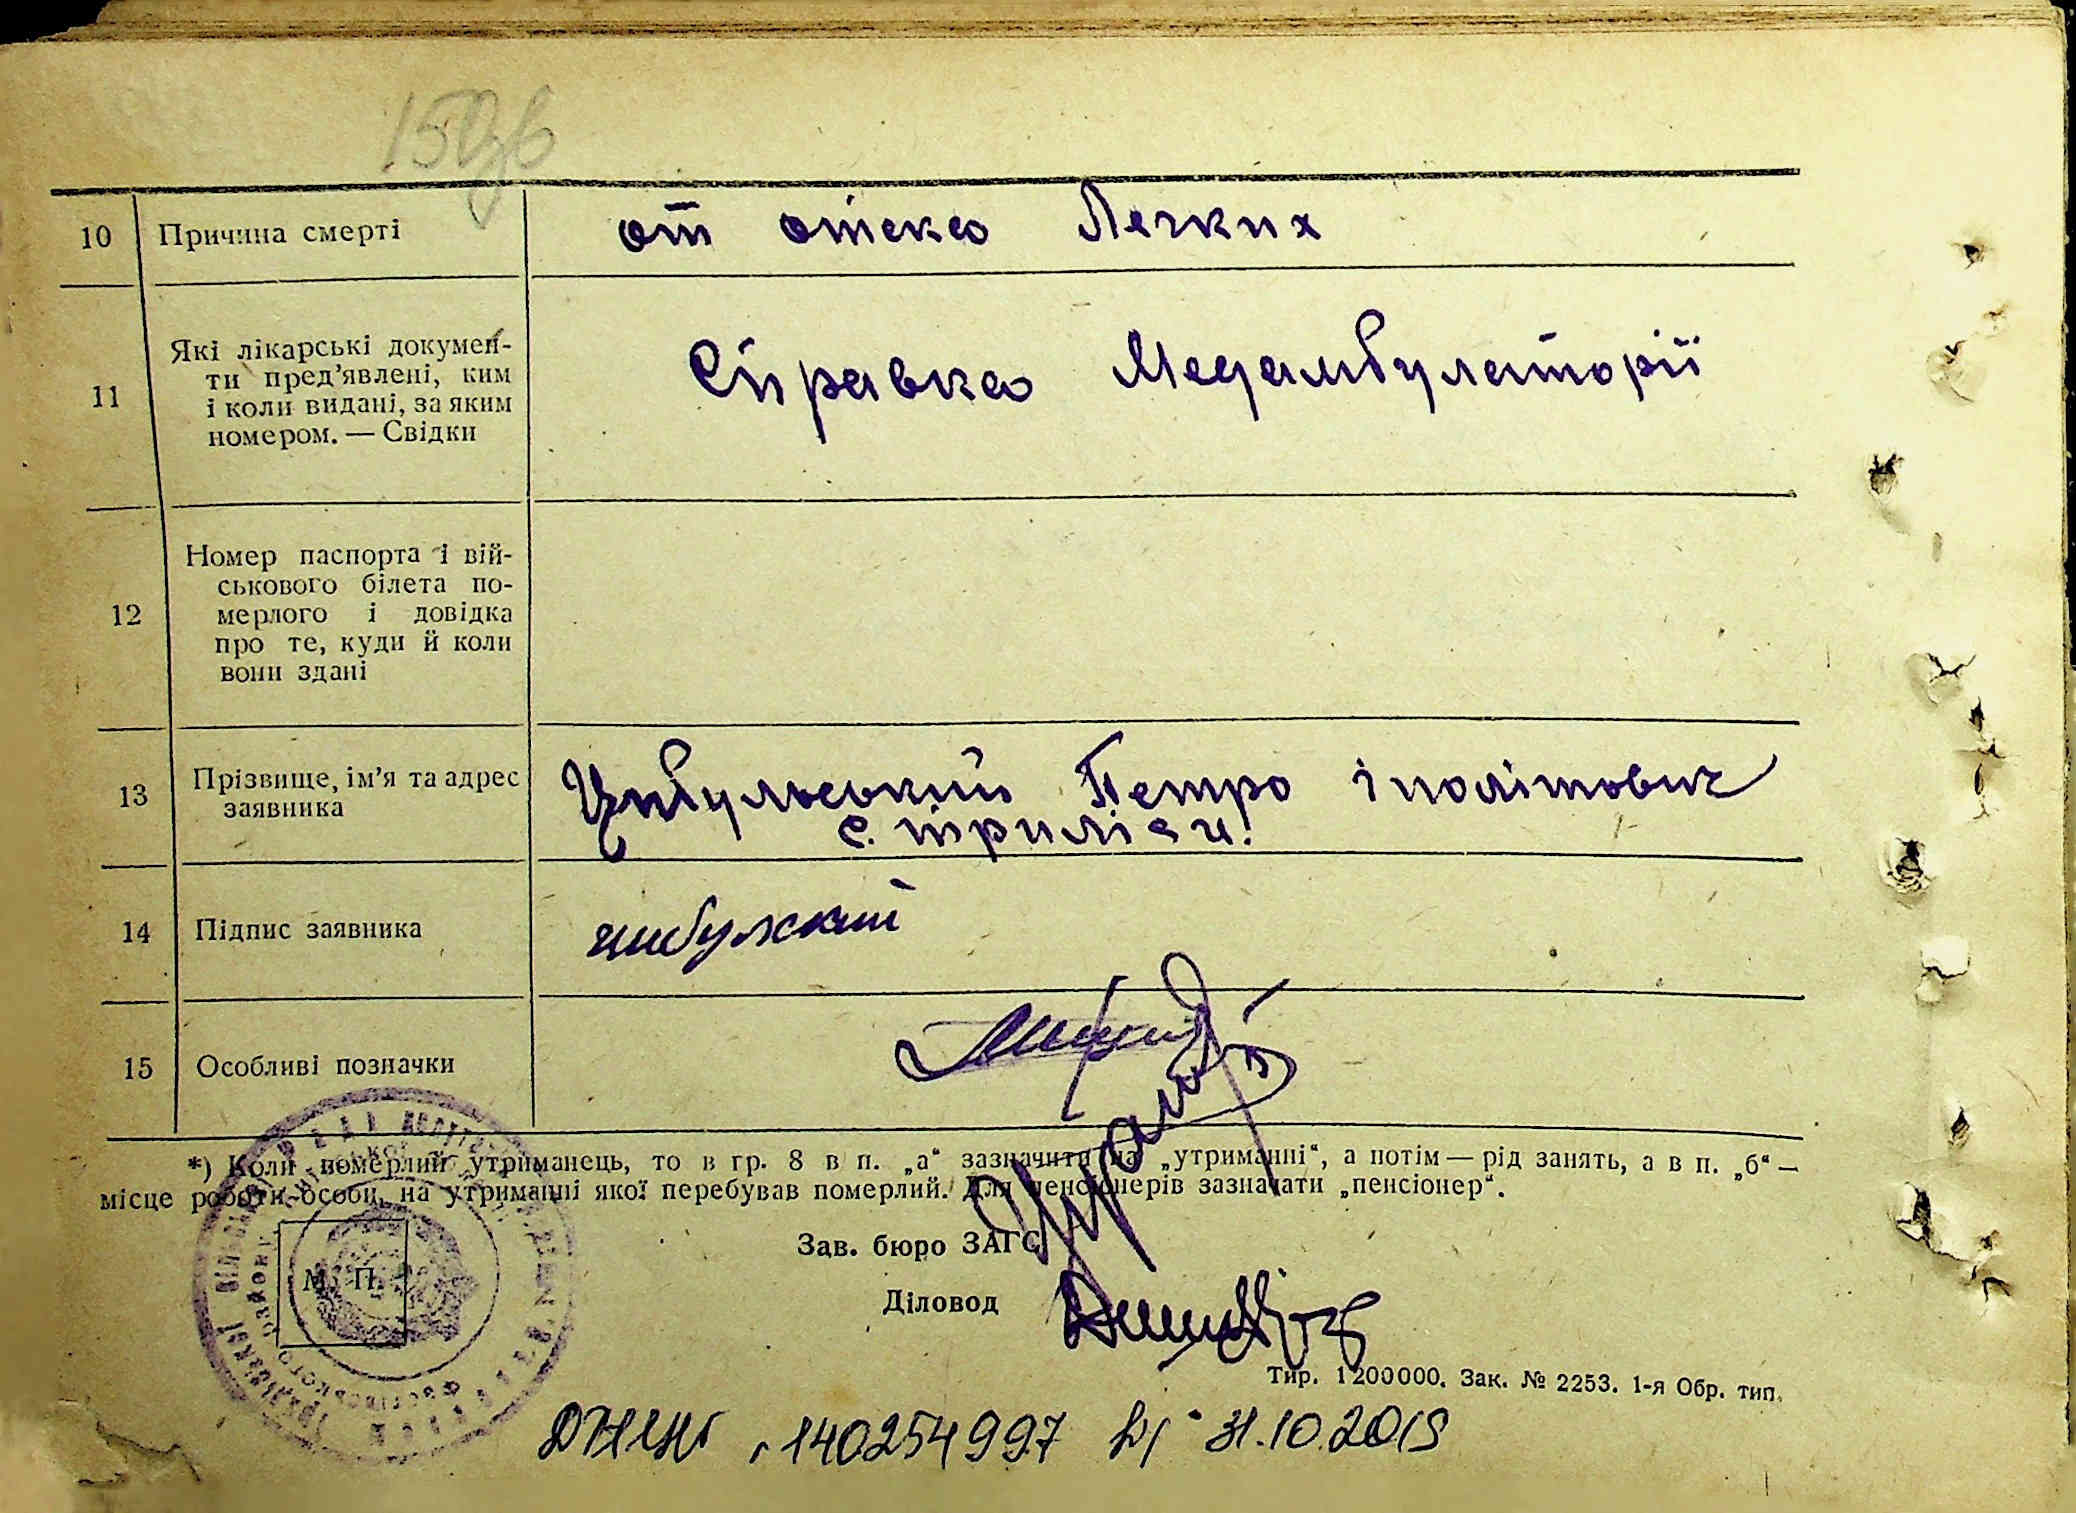 150зв
10 Причина смерті от отека Легких
11 Які лікарські докумен-
ти пред’явлені, ким
і коли видані, за яким
номером. — Свідки
Справка Медамбулаторії
12 Номер паспорта і вій-
ськового білета по-
мерлого і довідка
про те, куди й коли
вони здані
13 Прізвище, ім’я та адрес
заявника
Цибульський Петро іполітович
с. триліси.
14 Підпис заявника цибулский
15 Особливі позначки
*) Коли померлий утриманець, то в гр. 8 в п. „а“ зазначити на „утриманні“, а потім — рід занять, а в п. „б“ —
місце роботи особи, на утриманні якої перебував померлий. Для пенсіонерів зазначати „пенсіонер“.
М. П.
Зав. бюро ЗАГС
Діловод
Тир. 1200000. Зак. № 2253. 1-я Обр. тип.
140254997 31.10.2019